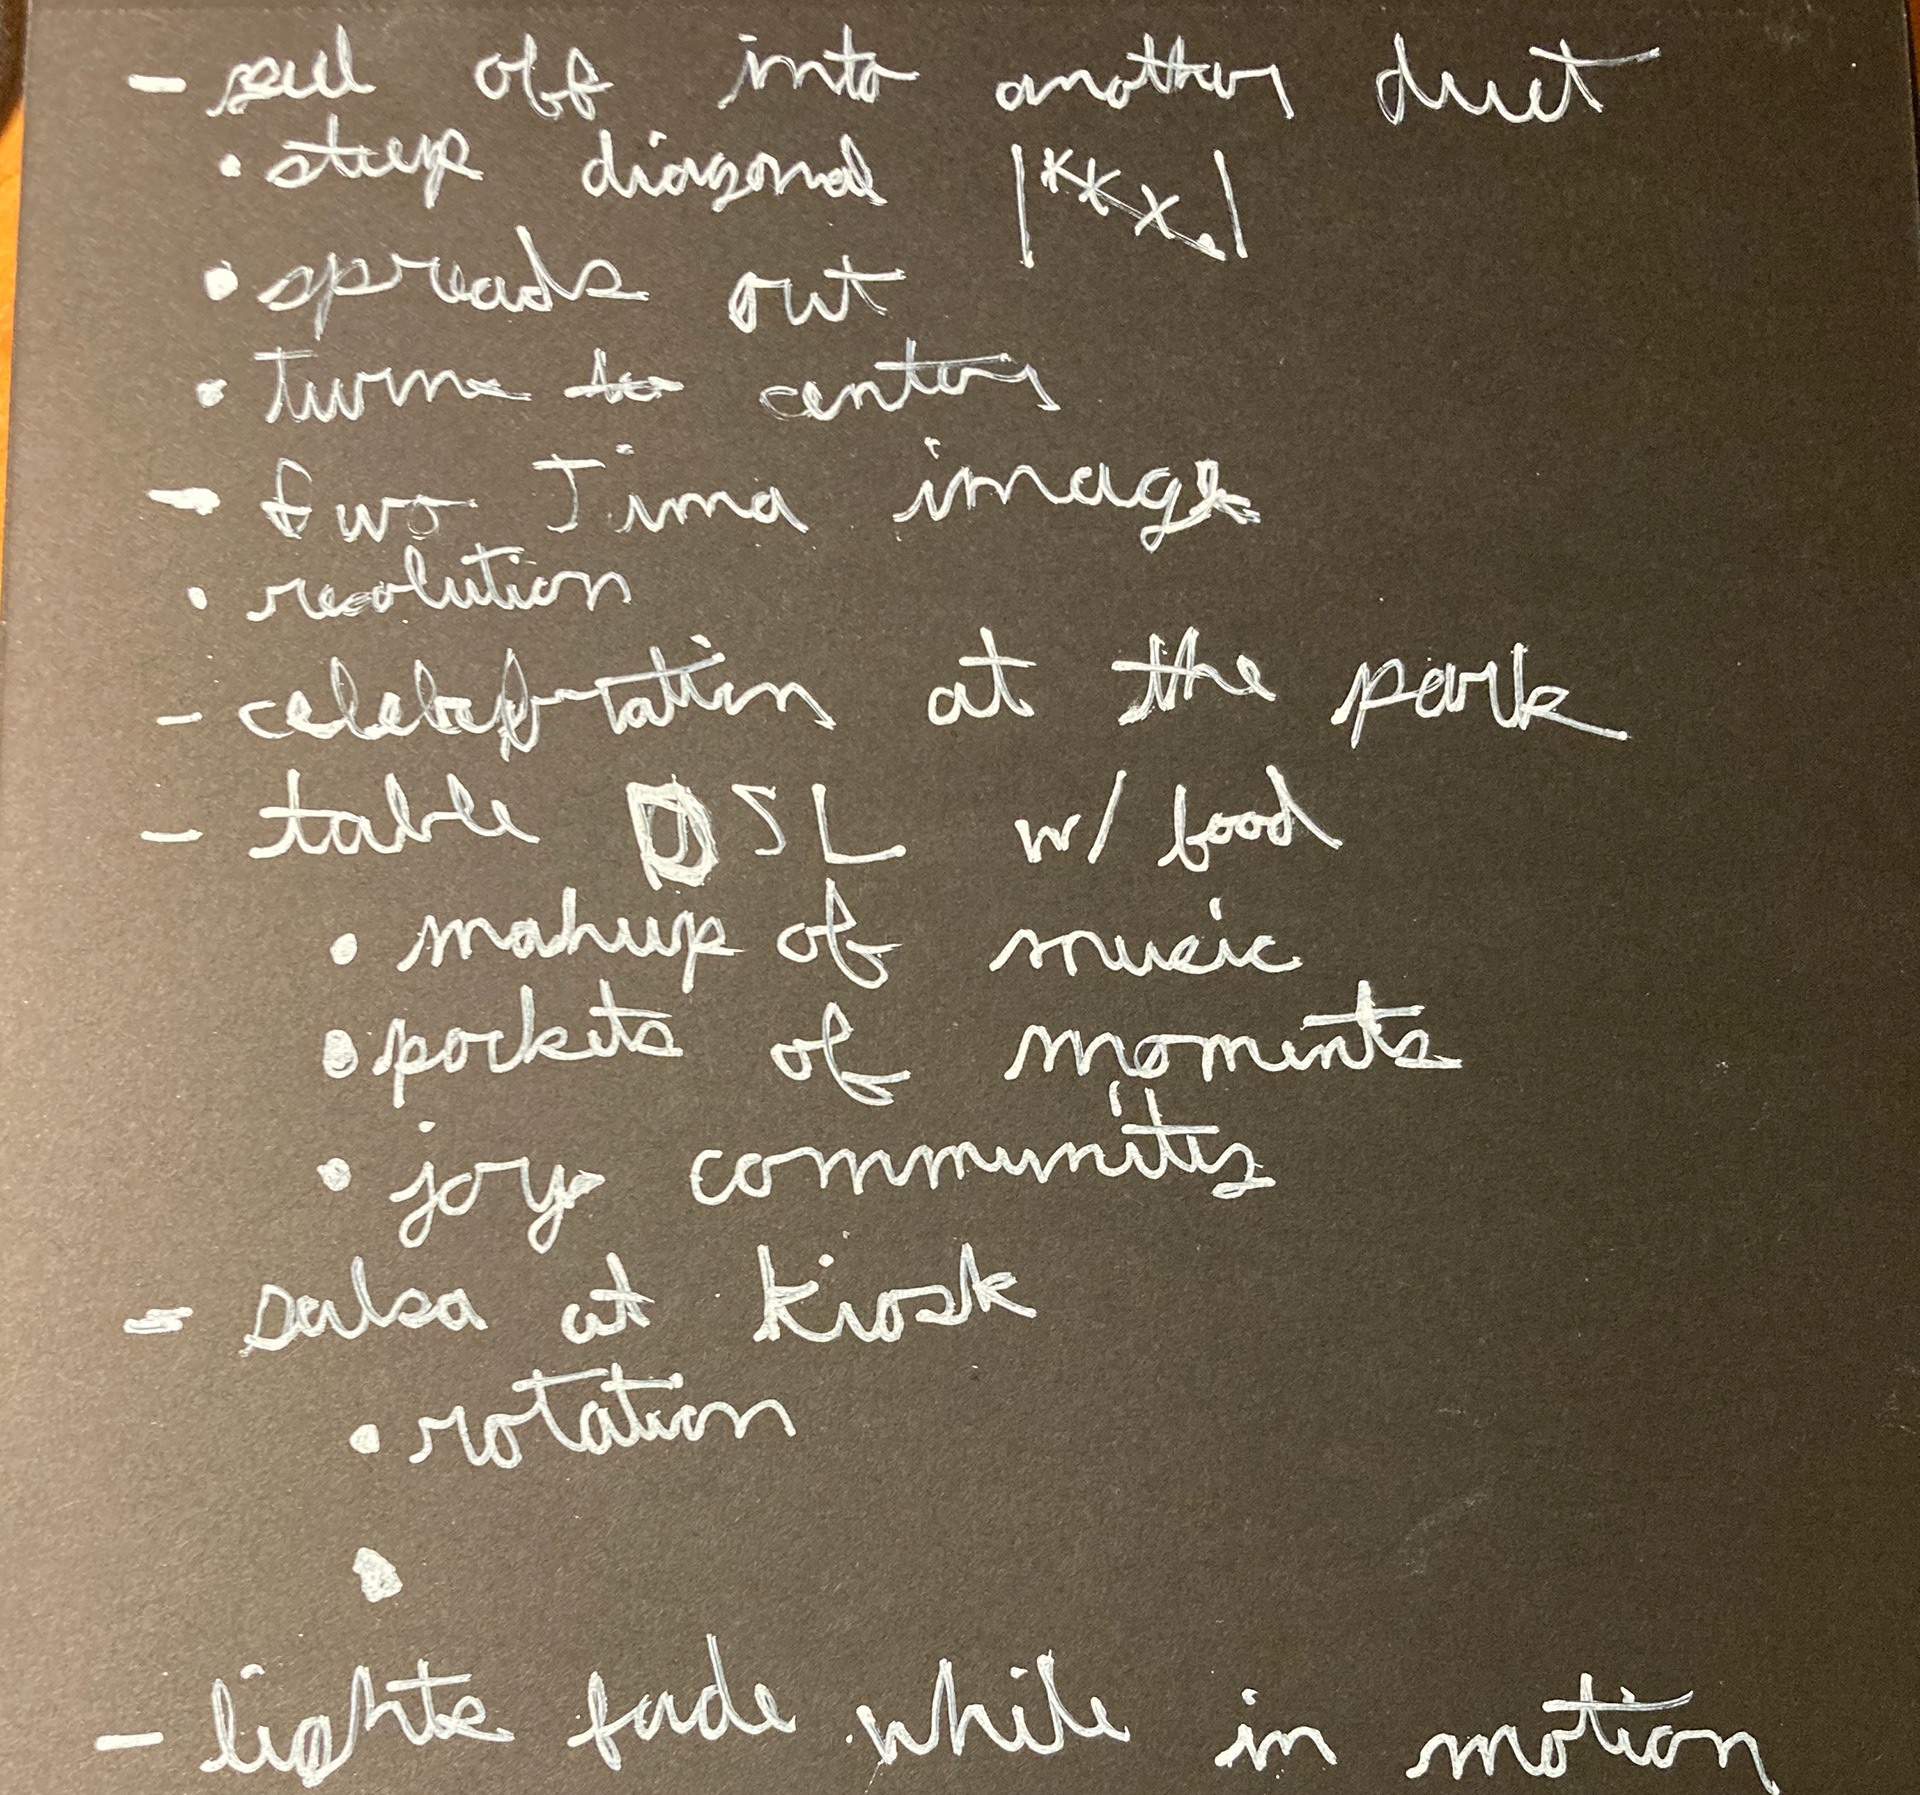 - off into another duet
• steep diagonal |xxx.|
• spreads out
• turns to center
- Iwo Jima image
• resolution
- celebration at the park
- table DSL w/ food
• mashup of music
• pockets of moments
• joy community
- salsa at kiosk
• rotation
•
- lights fade while in motion